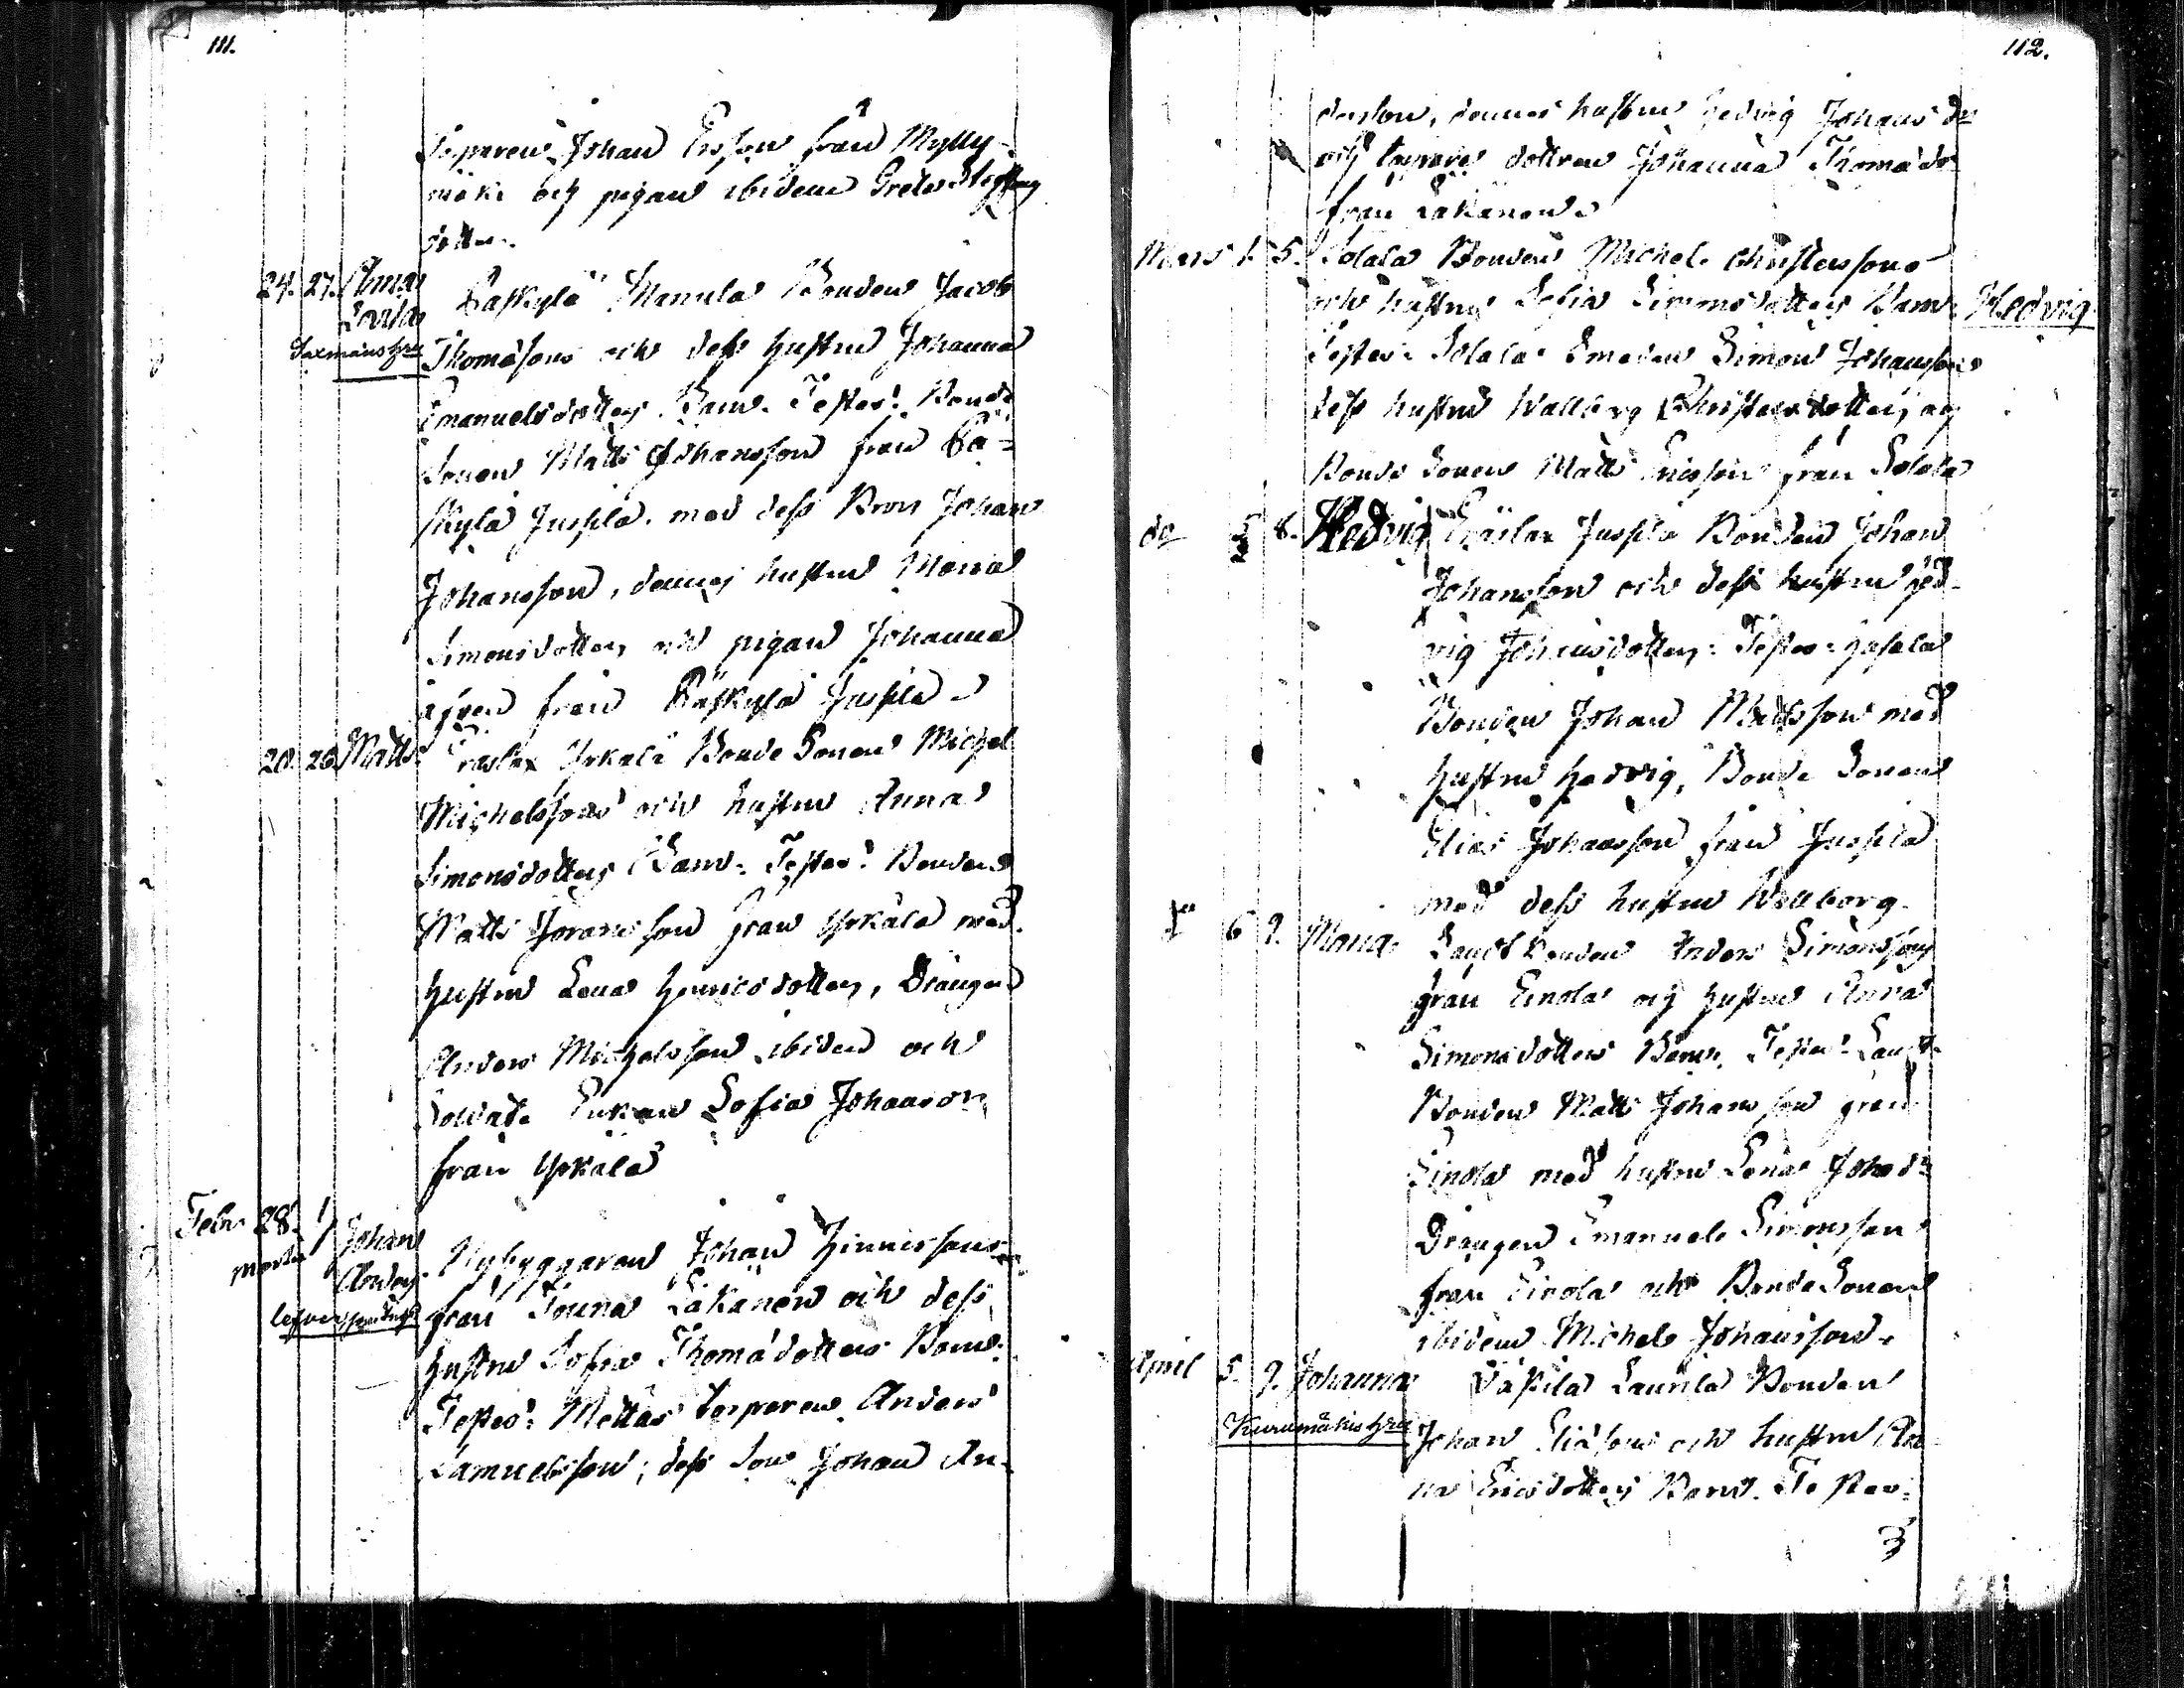 111.
Torparen Johan Ersson från Mylly-
mäki och pigan ibidem Greta
dotter.
24. 27. Anna Lovisa
Sexmans hre
Kaskylä Mannila Bonden Jacob
Thomasons och dess hustru Johanna
Emanuelsdotters Barn. Testes: Bonde
Sonen Matts Johansson från Ka-
skylä Jussila. med dess Bror Johan
Johansson, dennes hustru Maria
Simonsdotter, och pigan Johanna
från Kaskylä Jussila
20. 26. Matts
Yrkälä Bonde Sonen Michel
Michelssons och hustru Anna
Simonsdotters Barn. Testes: Bonden
Matts Göransson från Yrkälä med
hustru Lena Henricsdotter, Drängen
Anders Michelsson ibidem och
Soldats Enkan Sofia Johansdr
från Yrkälä
Febr. 28. 1/ Johan
Martii Anders
Nybyggaren Johan Hinnerssons
från Jouna Lakanen och dess
hustru Sofia Thomædotters Barn.
Testes: Mattas torparen Anders
Samuelsson; dess Son Johan An-
112.
dersson, dennes hustru Hedvig Johans dr
och torpare dottren Johanna Thomædr
från Lakanen
Mars 1. 5. Solala Bonden Michel Christerssons
och hustru Sofia Simonsdotters Barn. Hedvig
Testes: Solala Smeden Simon Johansson
dess hustru Wallborg Christersdotter, och
Bonde Sonen Matts Ericsson från Solala
do 5 8. Hedvig Eräslax Jussila Bonden Johan
Johansson och dess hustru Hed-
vig Johansdotter: Testes:
Bonden Johan Mattsson med
hustru Hedvig, Bonde Sonen
Elias Johansson från Jussila
med dess hustru Wallborg.
6 9. Maria Landtbonden Anders Simonssons
från Einola och hustru Anna
Simonsdotters Barn. Testes: Landt-
Bonden Matts Johansson från
Einola med hustru Lena Johsdr
Drängen Emanuel Simonsson
från Einola och Bonde Sonen
ibidem Michel Johansson.
April 5. 9. Johanna
Kurumäkis hre
Laurila Bonden
Johan Eliæsons och hustru An-
na Ericsdotters Barn. Testes: